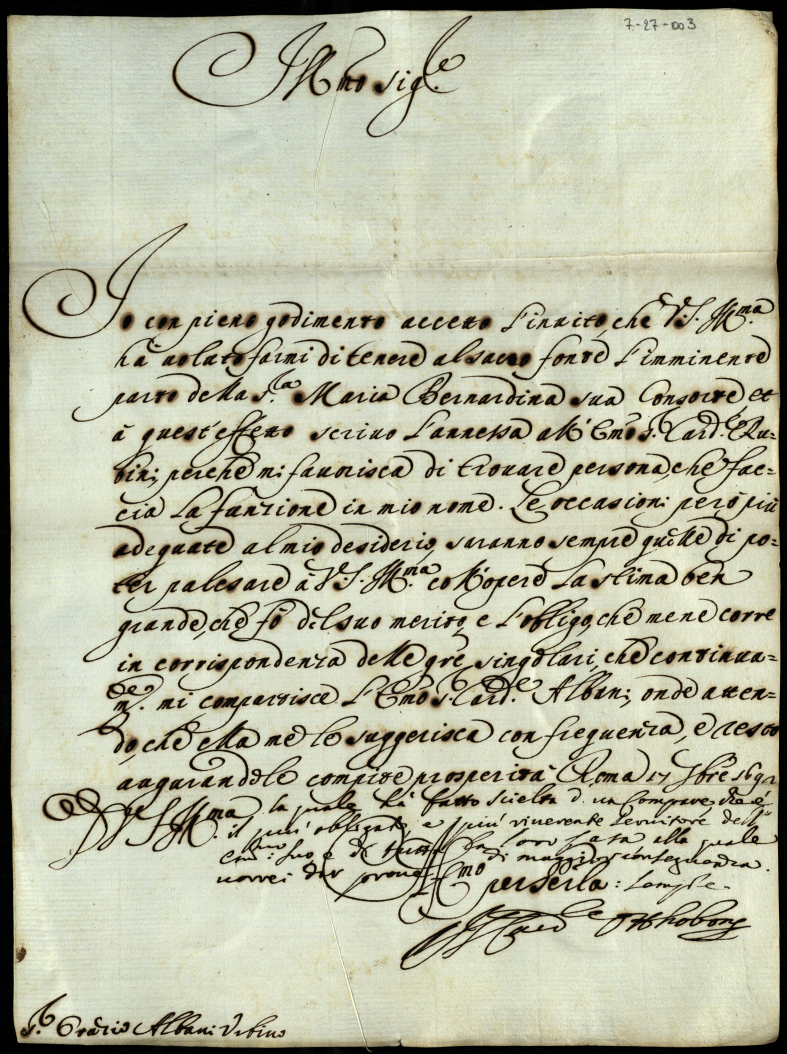 7-27-003
Ill.mo Sig.re
Io con pieno godimento accetto l'invito, che V.S. Ill.ma
hà voluto farmi di tenere al sacro fonte l'imminente
parto della S.ra Maria Bernardina sua Consorte, et
à quest'effetto scrivo l'annessa all'Emo S.r Card.le Ru=
bini, perche mi favorisca di trovare persona, che fac=
cia la funzione in mio nome. Le occasioni però più
adequate al mio desiderio, saranno sempre quelle di po=
ter palesare à V.S. Ill.ma coll'opere la stima ben
grande, che fò del suo merito, e l'obligo, che me ne corre
in corrispondenza delle gre singolari, che continua=
m.te mi compartisce l'Emo S.r Card.le Albani; onde atten=
do, che ella me le suggerisca con frequenza, e resto
augurandole compite prosperità. Roma 17 Xbre 169
D V S Ill.ma la quale hà fatto scielta d. un Compare, che è
il più obligato, e più riverente servitore dell'
Emo suo e di tutta la loro casa alla quale
vorrei dar prove di maggior conseguenza.
Aff.mo per Ser.la sempre
P Card.le Otthoboni
S.r Orazio Albani Urbino